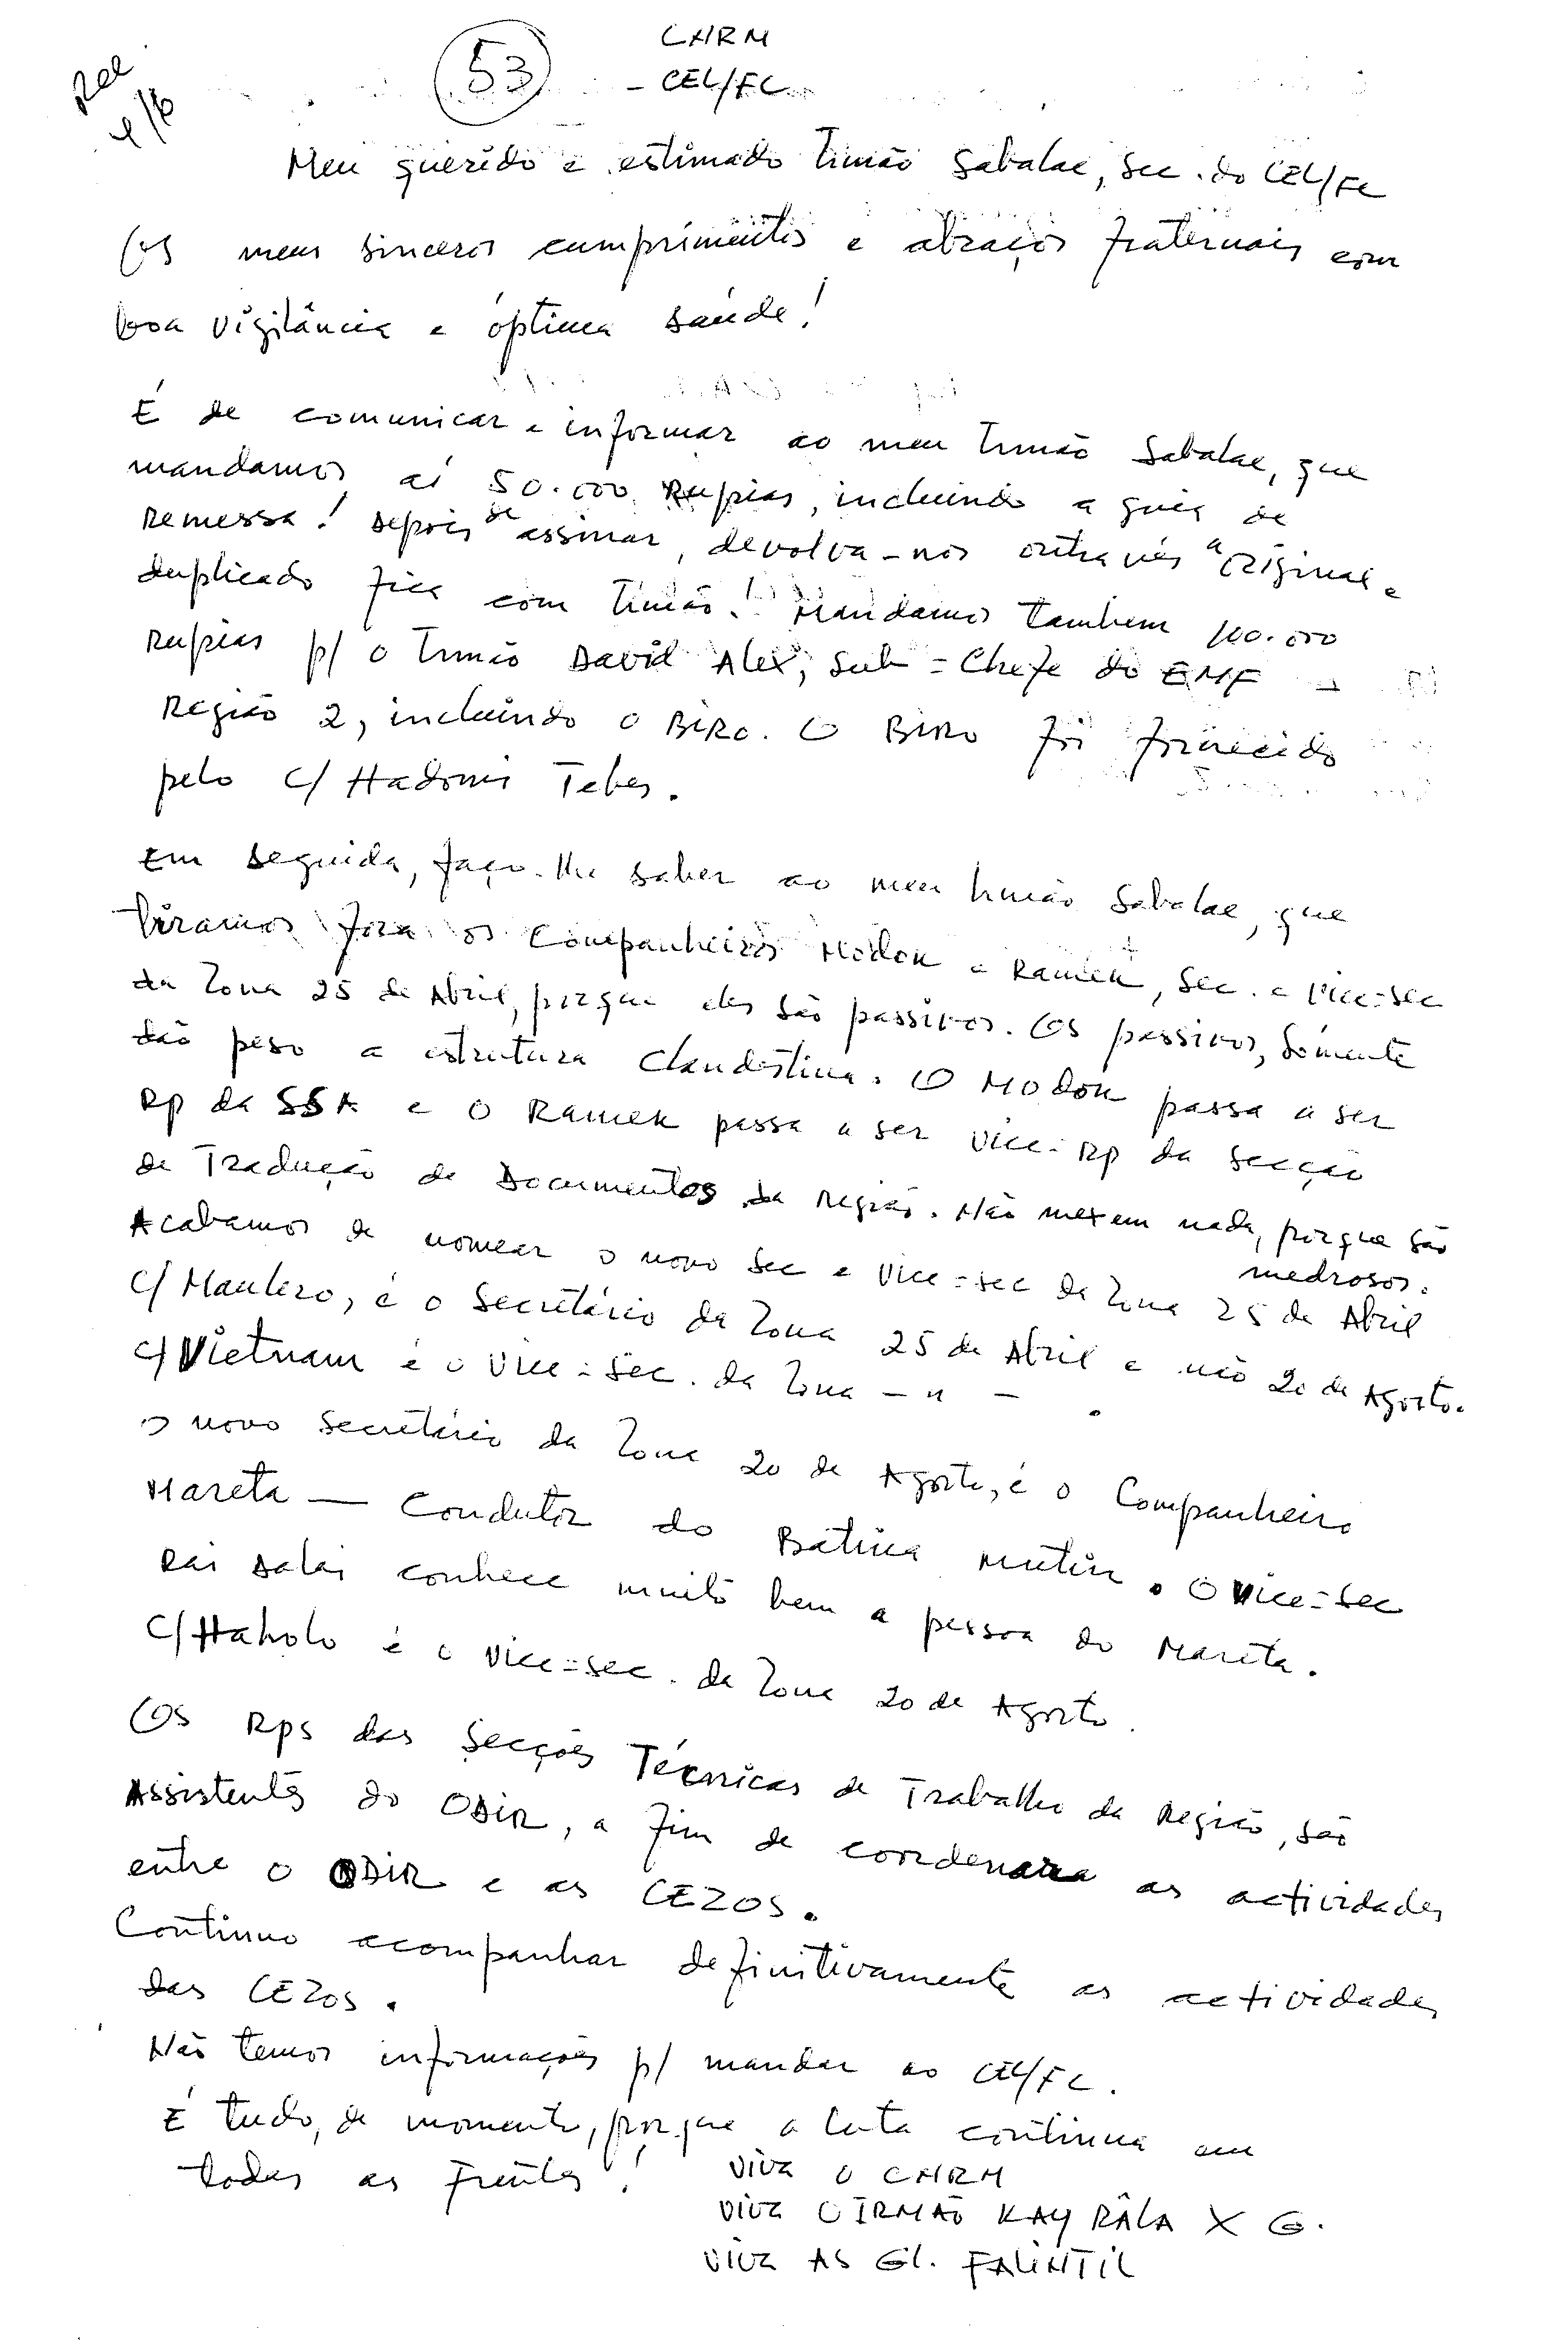 Rec 4/6
53
CNRM
- CEL/FC
Meu querido e estimado Irmão Sabalae, Sec. do CEL/FC
Os meus sinceros cumprimentos e abraços fraternais com
boa vigilância e óptima saúde!
É de comunicar e informar ao meu Irmão Sabalae, que
mandamos aí 50.000 Rupias, incluindo a guia de
Remessa! Depois de assinar, devolva-nos outra vés a original e
duplicado fica com Irmão! Mandamos tambem 100.000
Rupias p/ o Irmão David Alex, Sub=Chefe do EMF -
Região 2, incluindo o BIRO. O BIRO foi fornecido
pelo C/ Hadomi Tebes.
Em seguida, faço-lhe saber ao meu Irmão Sabalae, que
tiramos fora os Companheiros Modok e Ramek, Sec. e Vice=Sec
da Zona 25 de Abril, porque eles são passivos. Os passivos, sómente
dão peso a estrutura Clandestina. O Modok passa a ser
Rp da SSA e o Ramek passa a ser Vice-Rp da Secção
de Tradução de Documentos da Região. Não mexem nada, porque são
medrosos.
Acabamos de nomear o novo Sec e Vice=sec da Zona 25 de Abril
C/ Maulero, é o Secretário da Zona 25 de Abril e não 20 de Agosto.
C/ Vietnam é o Vice=Sec. da Zona - " - .
O novo Secretário da Zona 20 de Agosto, é o Companheiro
Mareta — Condutor do Batina Mutin. O Vice=Sec
Rai Dalai conhece muito bem a pessoa do Mareta.
C/ Haholo é o Vice=sec. da Zona 20 de Agosto.
Os Rps das Secções Técnicas de Trabalho da Região, são
Assistentes do ODIR, a fim de coordenara as actividades
entre o ODIR e as CEZOS.
Continuo acompanhar definitivamente as actividades
das CEZOS.
Não temos informações p/ mandar ao CEL/FC.
É tudo, de momento, porque a luta continua em
todas as Frentes!
VIVA O CNRM
VIVA O IRMÃO KAY RÂLA X G.
VIVA AS Gl. FALINTIL